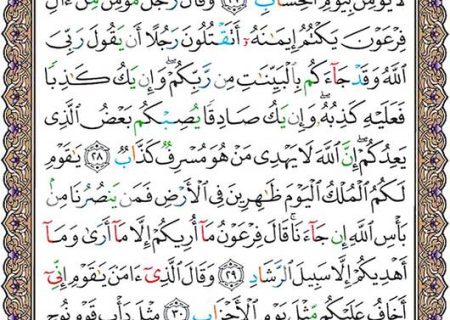 لَا يُؤْمِنُ بِيَوْمِ ٱلْحِسَابِ ٢٧ وَقَالَ رَجُلٌ مُّؤْمِنٌ مِّنْ ءَالِ
فِرْعَوْنَ يَكْتُمُ إِيمَٰنَهُۥٓ أَتَقْتُلُونَ رَجُلًا أَن يَقُولَ رَبِّىَ
ٱللَّهُ وَقَدْ جَآءَكُم بِٱلْبَيِّنَٰتِ مِن رَّبِّكُمْ ۖ وَإِن يَكُ كَٰذِبًا
فَعَلَيْهِ كَذِبُهُۥ ۖ وَإِن يَكُ صَادِقًا يُصِبْكُم بَعْضُ ٱلَّذِى
يَعِدُكُمْ ۖ إِنَّ ٱللَّهَ لَا يَهْدِى مَنْ هُوَ مُسْرِفٌ كَذَّابٌ ٢٨ يَٰقَوْمِ
لَكُمُ ٱلْمُلْكُ ٱلْيَوْمَ ظَٰهِرِينَ فِى ٱلْأَرْضِ فَمَن يَنصُرُنَا مِنۢ
بَأْسِ ٱللَّهِ إِن جَآءَنَا ۚ قَالَ فِرْعَوْنُ مَآ أُرِيكُمْ إِلَّا مَآ أَرَىٰ وَمَآ
أَهْدِيكُمْ إِلَّا سَبِيلَ ٱلرَّشَادِ ٢٩ وَقَالَ ٱلَّذِىٓ ءَامَنَ يَٰقَوْمِ إِنِّىٓ
أَخَافُ عَلَيْكُم مِّثْلَ يَوْمِ ٱلْأَحْزَابِ ٣٠ مِثْلَ دَأْبِ قَوْمِ نُوحٍ